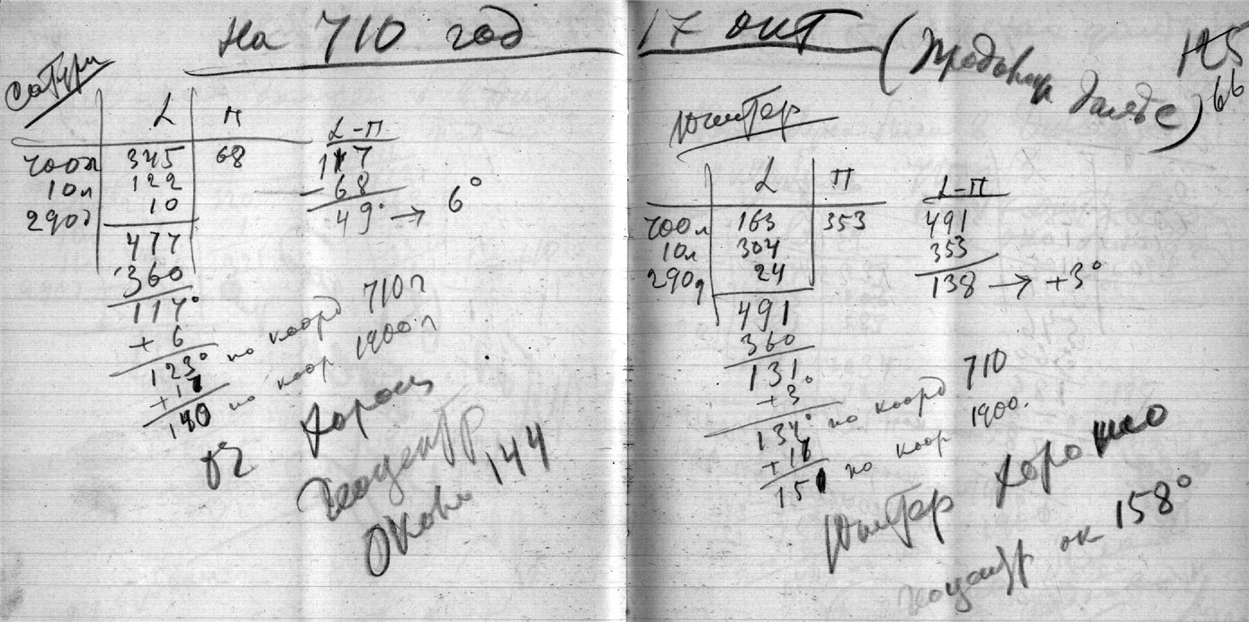 На 710 год
Сатурн
L П
700л 345 68
10л 122
290д 10
477
360
117°
+ 6
123° по коорд 710г
+17
140 по коор 1900г
L-П
117
68
49° → 6°
Хорош
Геоцентр
Около 144
17 окт (Продолж далее)
66
Юпитер
L П
700л 163 353
10л 304
290д 24
491
360
131
+3°
134° по коорд 710
+17
151 по коор 1900.
L-П
491
353
138 → +3°
Юпитер хорошо
геоцентр ок 158°